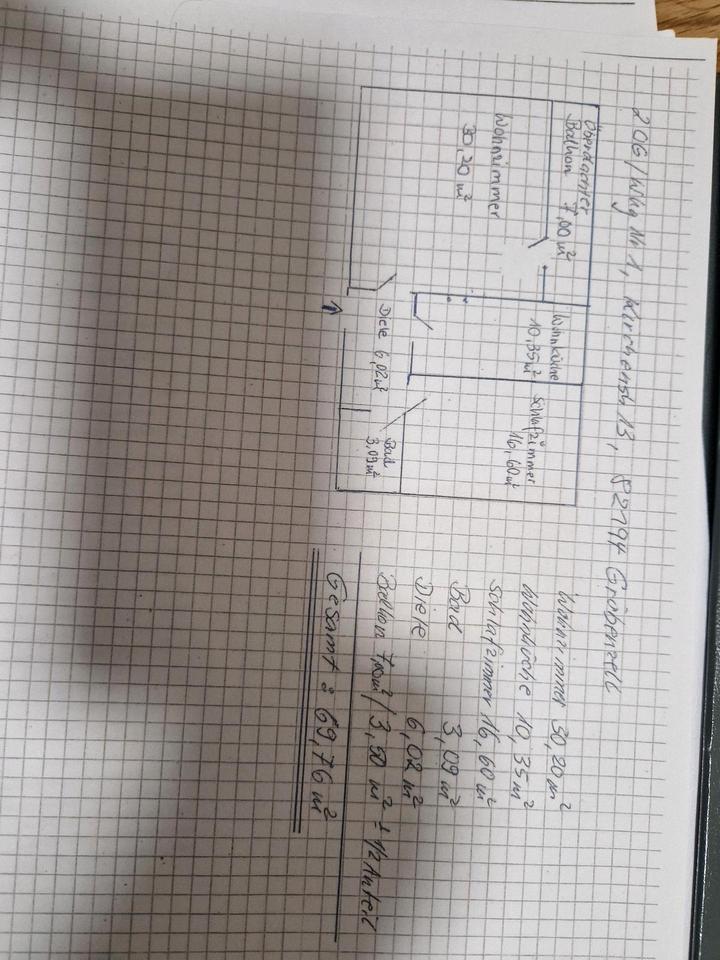 2OG/Whg Nr 1, Kirchenstr 13, 82194 Gröbenzell
Überdachter
Balkon 7,00 m²
Wohnzimmer
30,20 m²
Wohnküche
10,35 m²
Schlafzimmer
16,60 m²
Diele 6,02 m²
Bad
3,09 m²
Wohnzimmer 30,20 m²
Wohnküche 10,35 m²
Schlafzimmer 16,60 m²
Bad 3,09 m²
Diele 6,02 m²
Balkon 7,00 m² / 3,50 m² = 1/2 Anteil
Gesamt : 69,76 m²